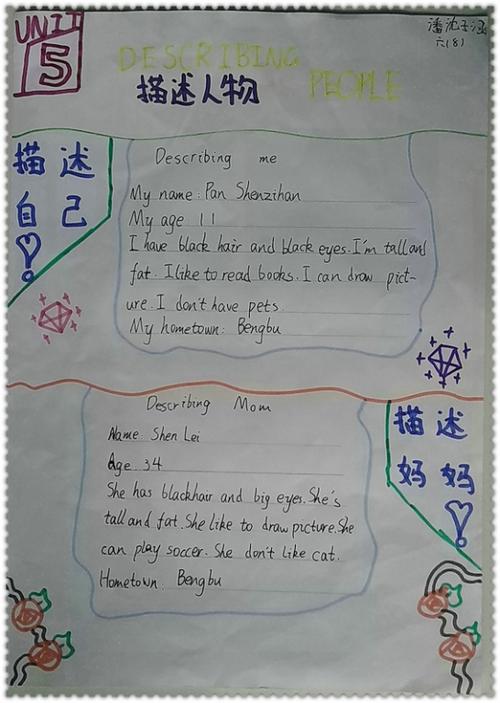 UNIT
5
潘沈子涵
六(8)
DESCRIBING
描述人物 PEOPLE
描述
自己
!
Describing me
My name: Pan Shenzihan
My age 11
I have black hair and black eyes. I'm tall and
fat. I like to read books. I can draw pict-
ure. I don't have pets.
My hometown: Bengbu
Describing Mom
Name: Shen Lei
Age: 34
She has blackhair and big eyes. She's
tall and fat. She like to draw picture. She
can play soccer. She don't like cat.
Hometown: Bengbu
描述
妈妈
!